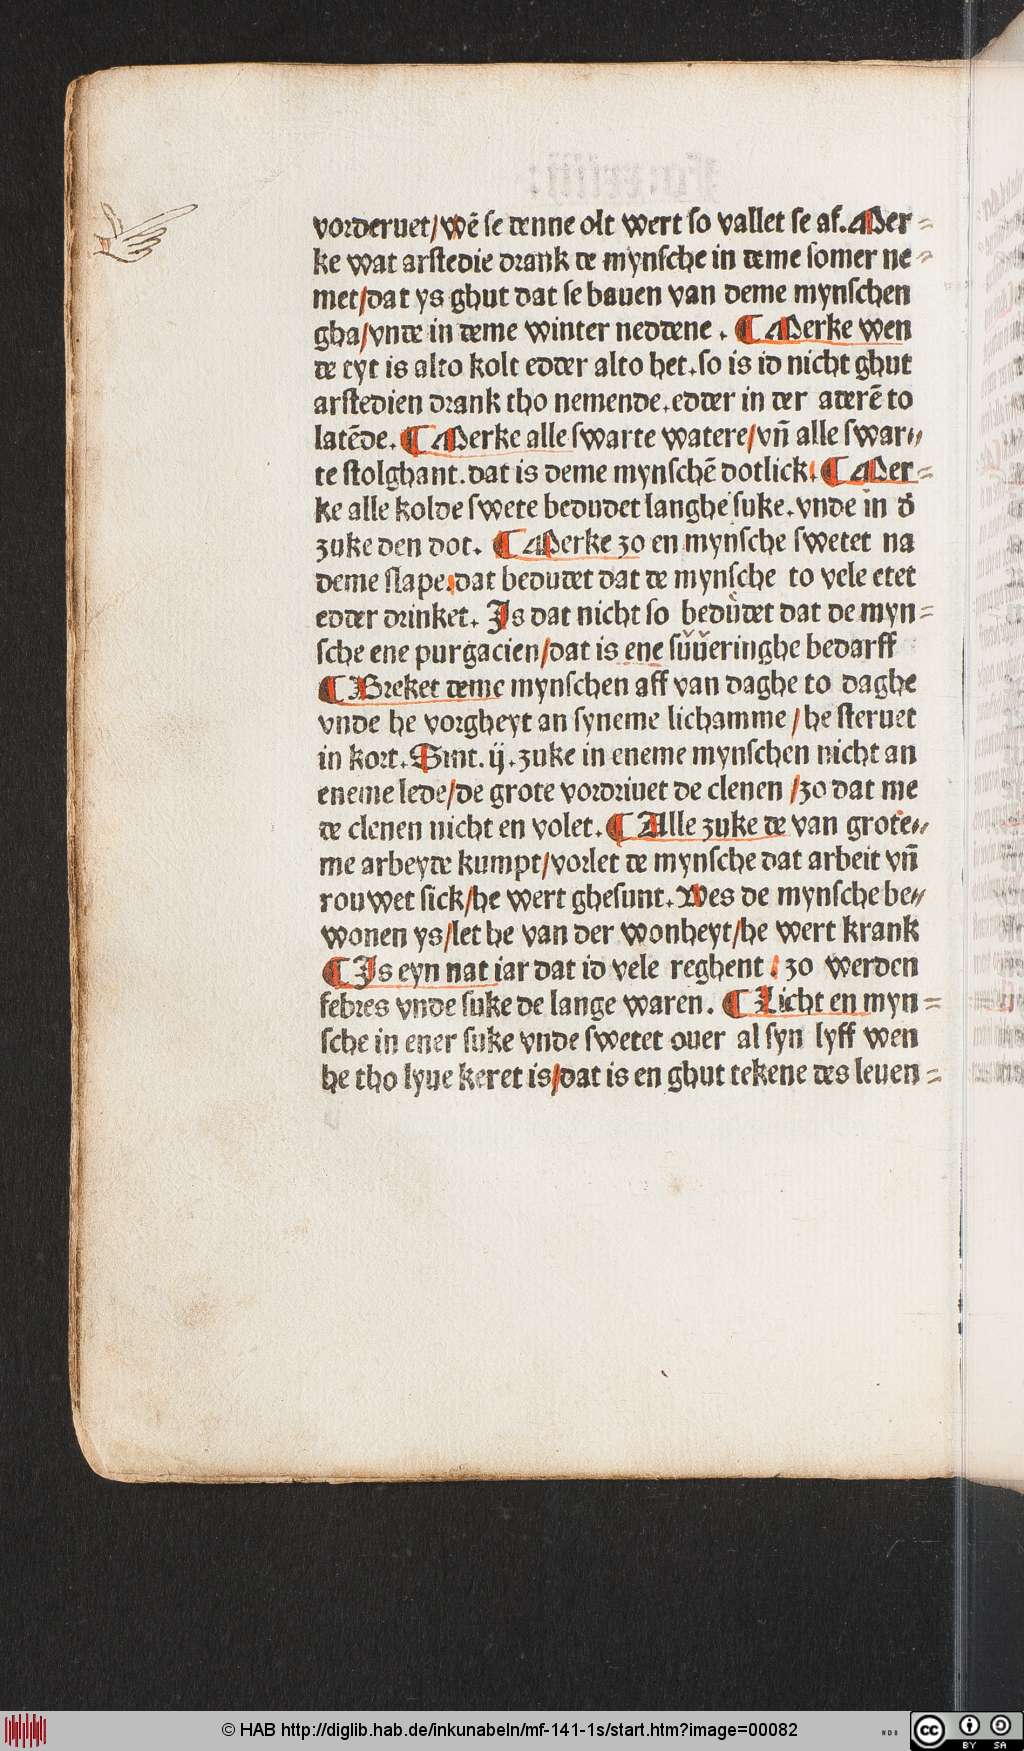 vorderuet/wē se denne olt wert so vallet se af. Mer⸗
ke wat arstedie drank de mynsche in deme somer ne⸗
met/dat ys ghut dat se bauen van deme mynschen
gha/vnde in deme winter neddene. ¶ Merke wen
de tyt is alto kolt edder alto het. so is id nicht ghut
arstedien drank tho nemende. edder in der aderē to
latēde. ¶ Merke alle swarte watere/vn̄ alle swar⸗
te stolghant. dat is deme mynschē dotlick. ¶ Mer⸗
ke alle kolde swete bedudet langhe suke. vnde in d̕
zuke den dot. ¶ Merke zo en mynsche swetet na
deme slape. dat bedudet dat de mynsche to vele etet
edder drinket. Is dat nicht so bedůdet dat de myn⸗
sche ene purgacien/dat is ene sůůeringhe bedarff
¶ Breket deme mynschen aff van daghe to daghe
vnde he vorgheyt an syneme lichamme/he steruet
in kort. Sint. ij. zuke in eneme mynschen nicht an
eneme lede/de grote vordriuet de clenen/zo dat me
de clenen nicht en volet. ¶ Alle zuke de van grote⸗
me arbeyde kumpt/vorlet de mynsche dat arbeit vn̄
rouwet sick/he wert ghesunt. Wes de mynsche be⸗
wonen ys/let he van der wonheyt/he wert krank
¶ Is eyn nat iar dat id vele reghent. zo werden
febres vnde suke de lange waren. ¶ Licht en myn⸗
sche in ener suke vnde swetet ouer al syn lyff wen
he tho lyue keret is/dat is en ghut tekene des leuen⸗
© HAB http://diglib.hab.de/inkunabeln/mf-141-1s/start.htm?image=00082
cc BY SA